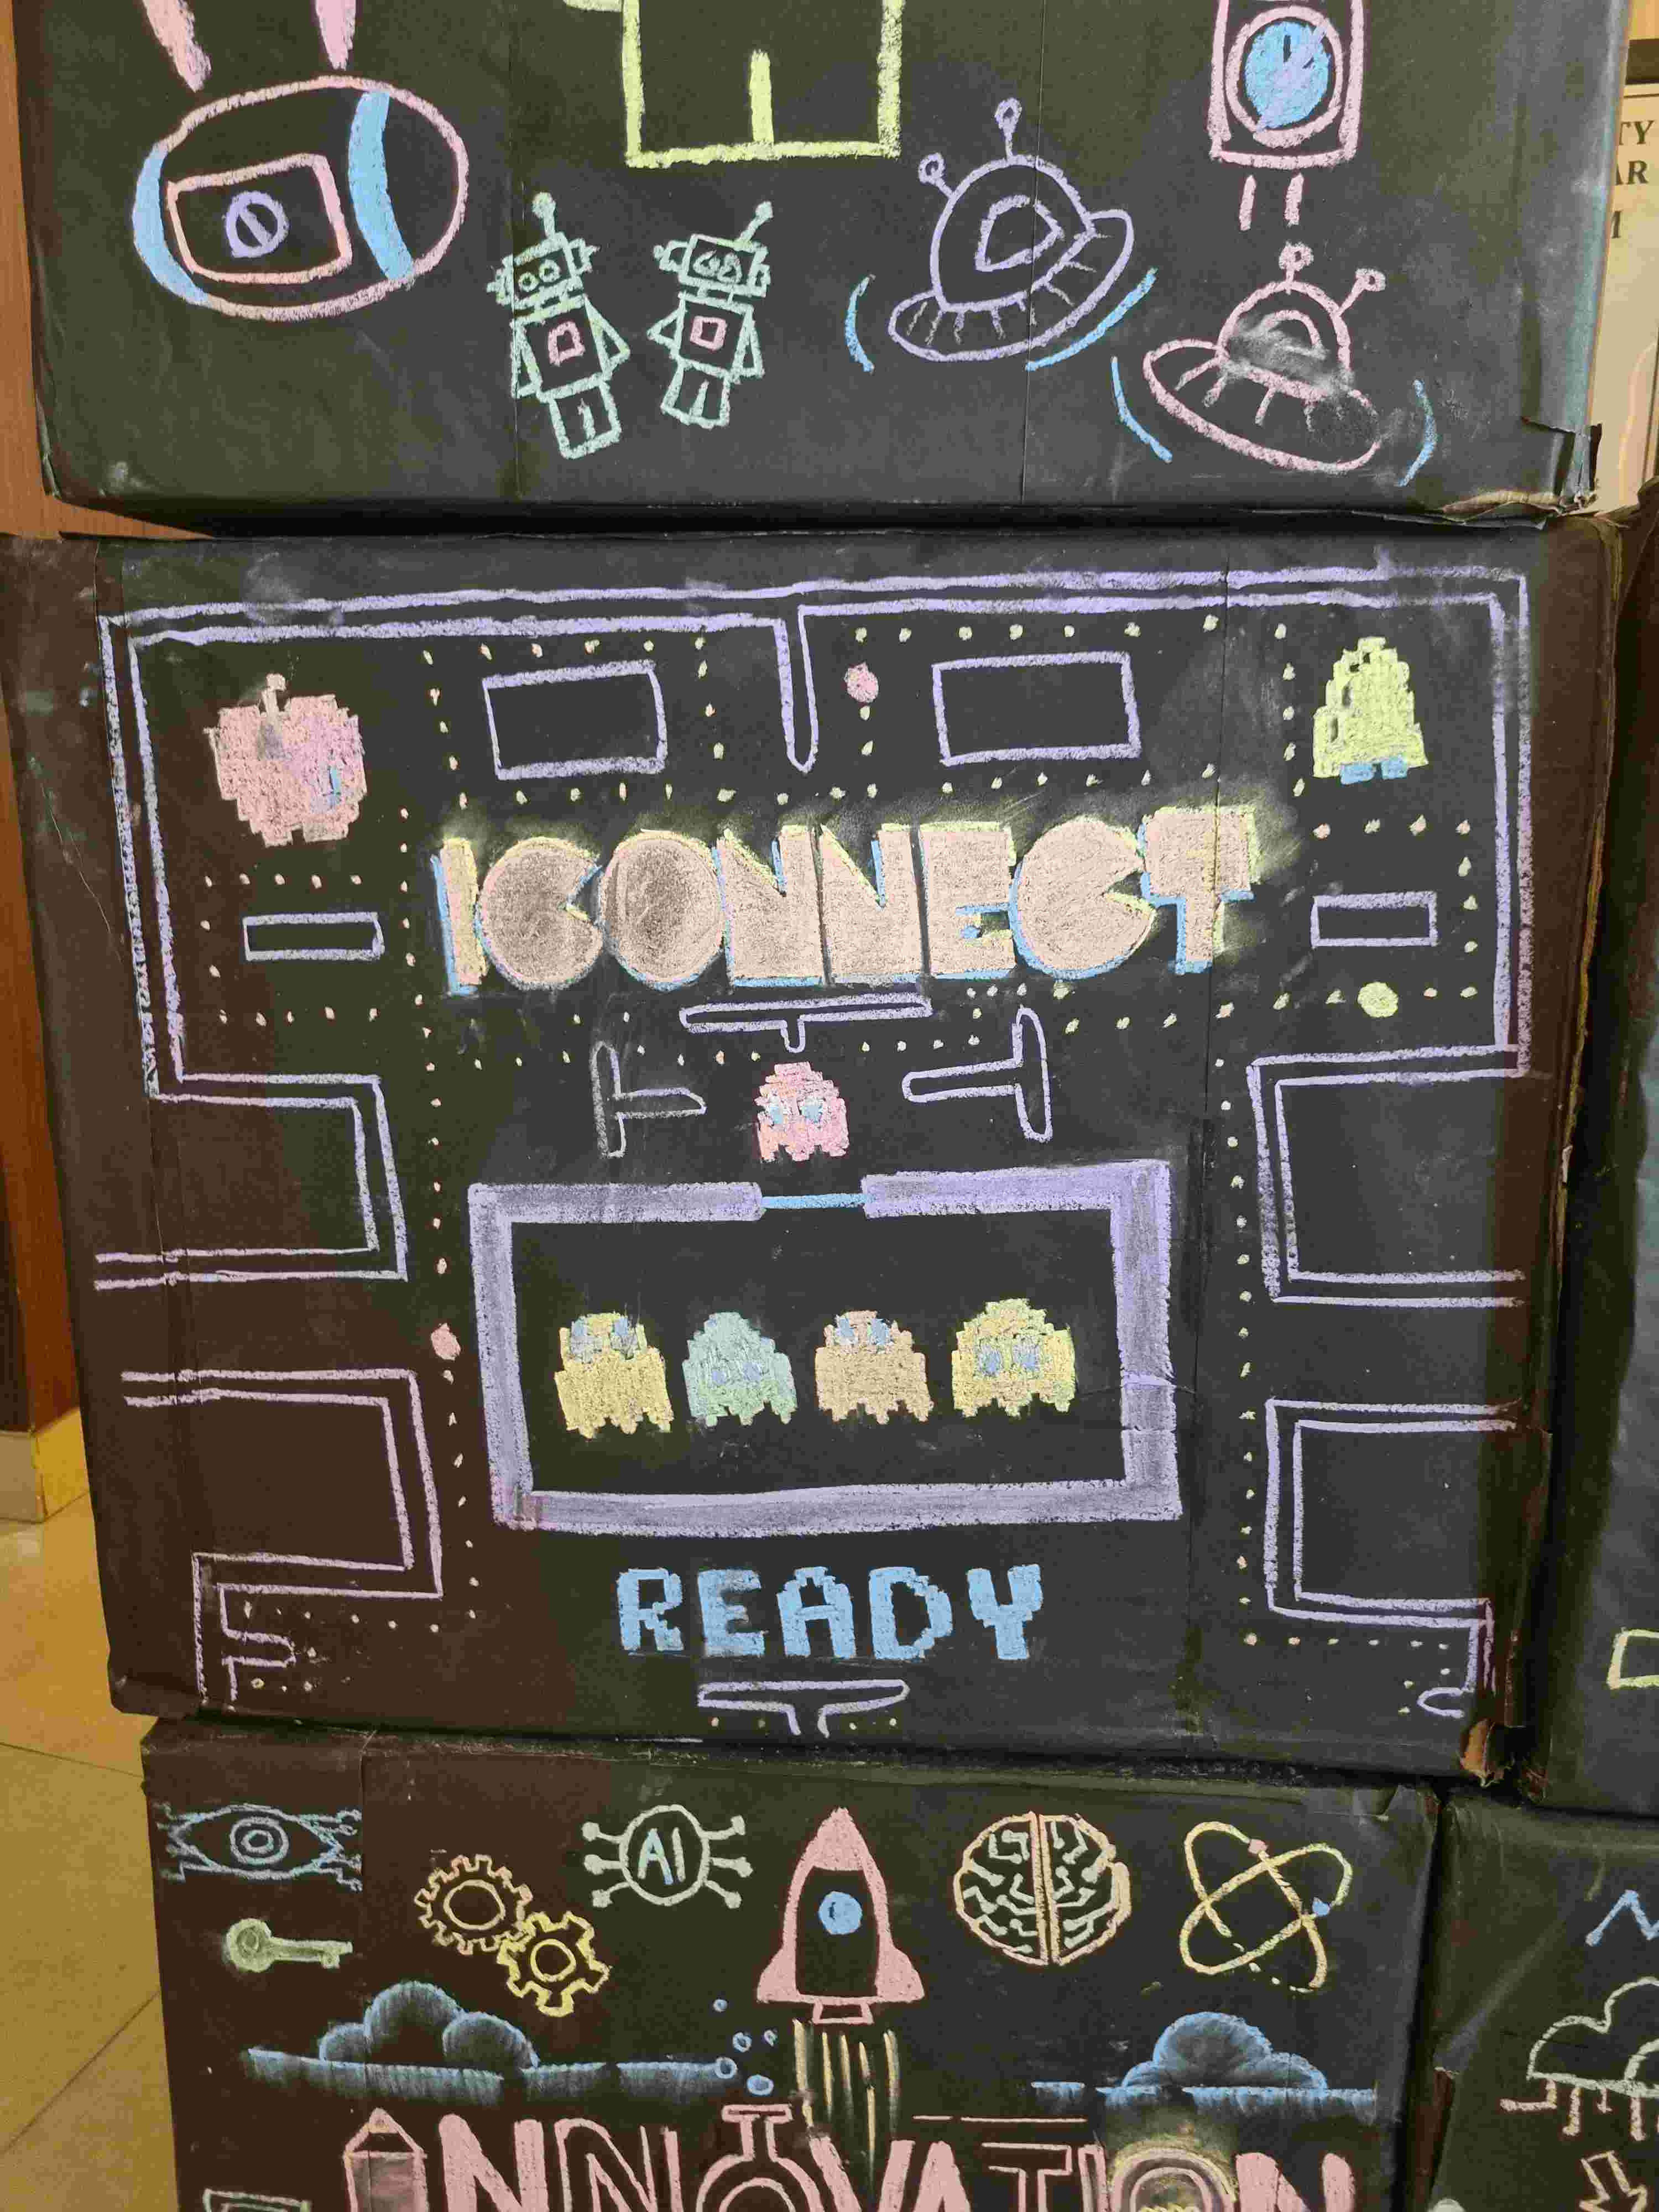 TY
AR
ICONNECT
READY
AI
INNOVATION